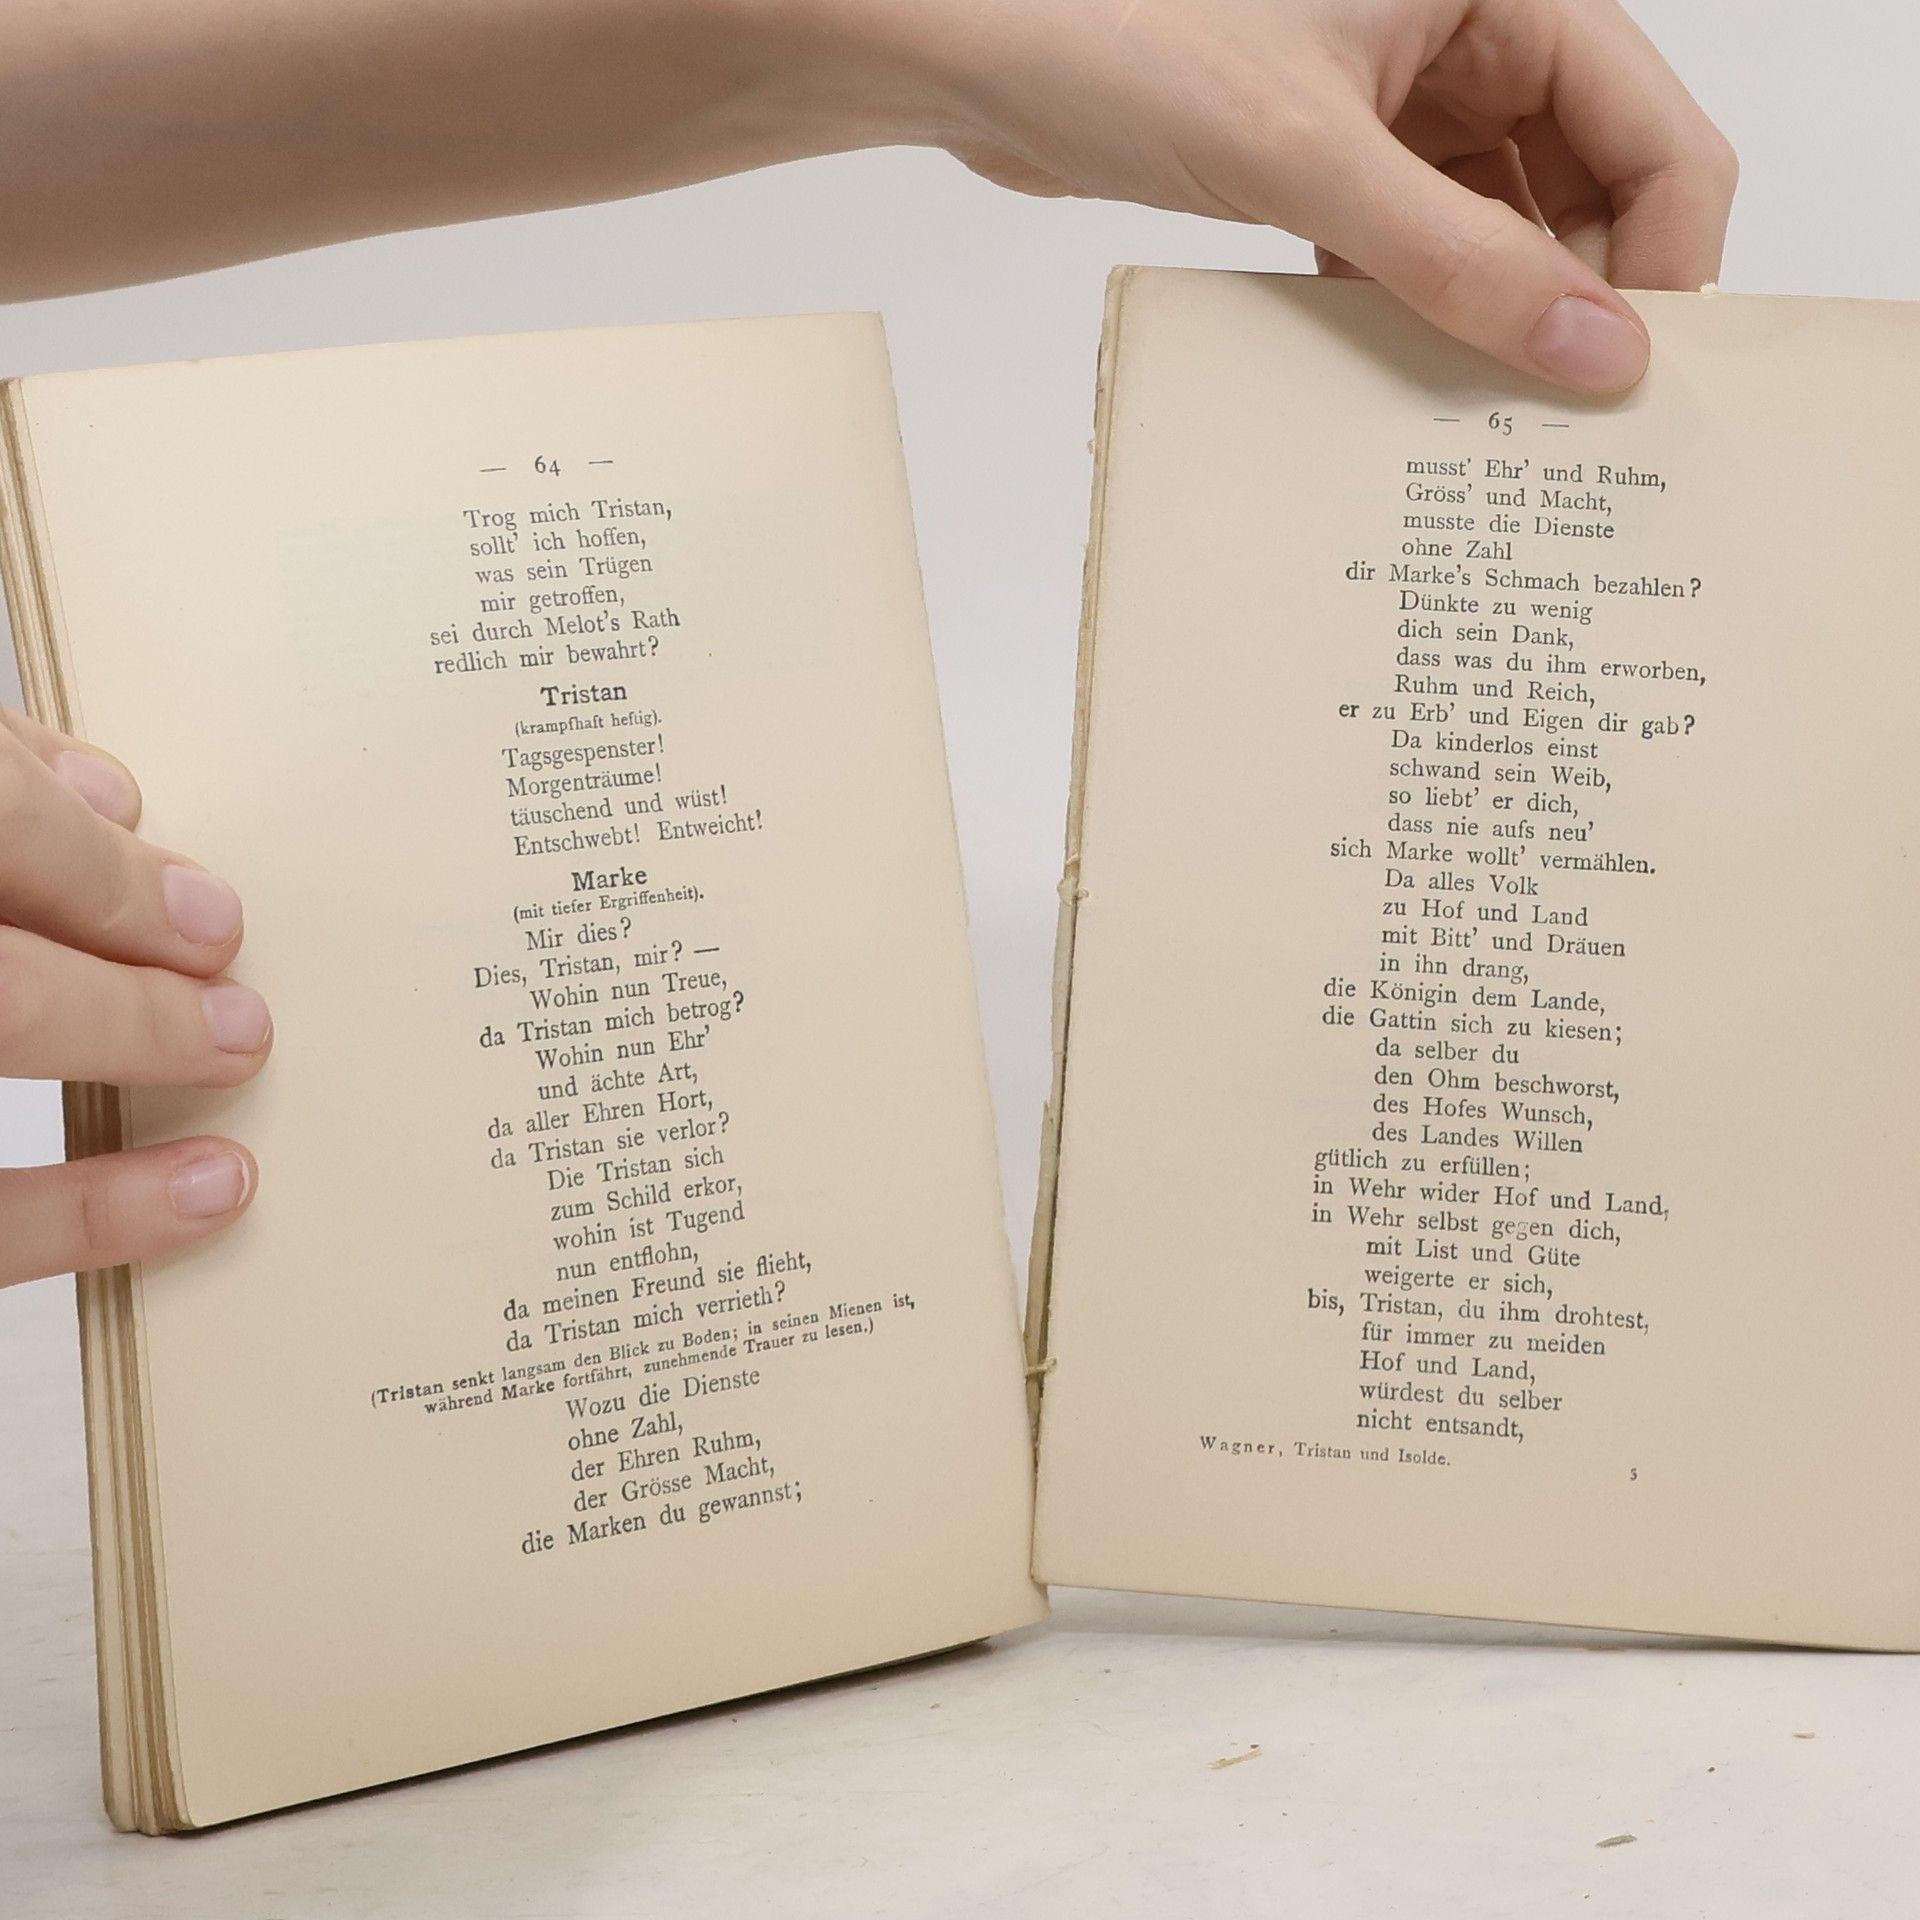 — 64 —
Trog mich Tristan,
sollt' ich hoffen,
was sein Trügen
mir getroffen,
sei durch Melot's Rath
redlich mir bewahrt?
Tristan
(krampfhaft heftig).
Tagsgespenster!
Morgenträume!
täuschend und wüst!
Entschwebt! Entweicht!
Marke
(mit tiefer Ergriffenheit).
Mir dies?
Dies, Tristan, mir? —
Wohin nun Treue,
da Tristan mich betrog?
Wohin nun Ehr'
und ächte Art,
da aller Ehren Hort,
da Tristan sie verlor?
Die Tristan sich
zum Schild erkor,
wohin ist Tugend
nun entflohn,
da meinen Freund sie flieht,
da Tristan mich verrieth?
(Tristan senkt langsam den Blick zu Boden; in seinen Mienen ist,
während Marke fortfährt, zunehmende Trauer zu lesen.)
Wozu die Dienste
ohne Zahl,
der Ehren Ruhm,
der Grösse Macht,
die Marken du gewannst;
— 65 —
musst' Ehr' und Ruhm,
Gröss' und Macht,
musste die Dienste
ohne Zahl
dir Marke's Schmach bezahlen?
Dünkte zu wenig
dich sein Dank,
dass was du ihm erworben,
Ruhm und Reich,
er zu Erb' und Eigen dir gab?
Da kinderlos einst
schwand sein Weib,
so liebt' er dich,
dass nie aufs neu'
sich Marke wollt' vermählen.
Da alles Volk
zu Hof und Land
mit Bitt' und Dräuen
in ihn drang,
die Königin dem Lande,
die Gattin sich zu kiesen;
da selber du
den Ohm beschworst,
des Hofes Wunsch,
des Landes Willen
gütlich zu erfüllen;
in Wehr wider Hof und Land,
in Wehr selbst gegen dich,
mit List und Güte
weigerte er sich,
bis, Tristan, du ihm drohtest,
für immer zu meiden
Hof und Land,
würdest du selber
nicht entsandt,
Wagner, Tristan und Isolde.
5